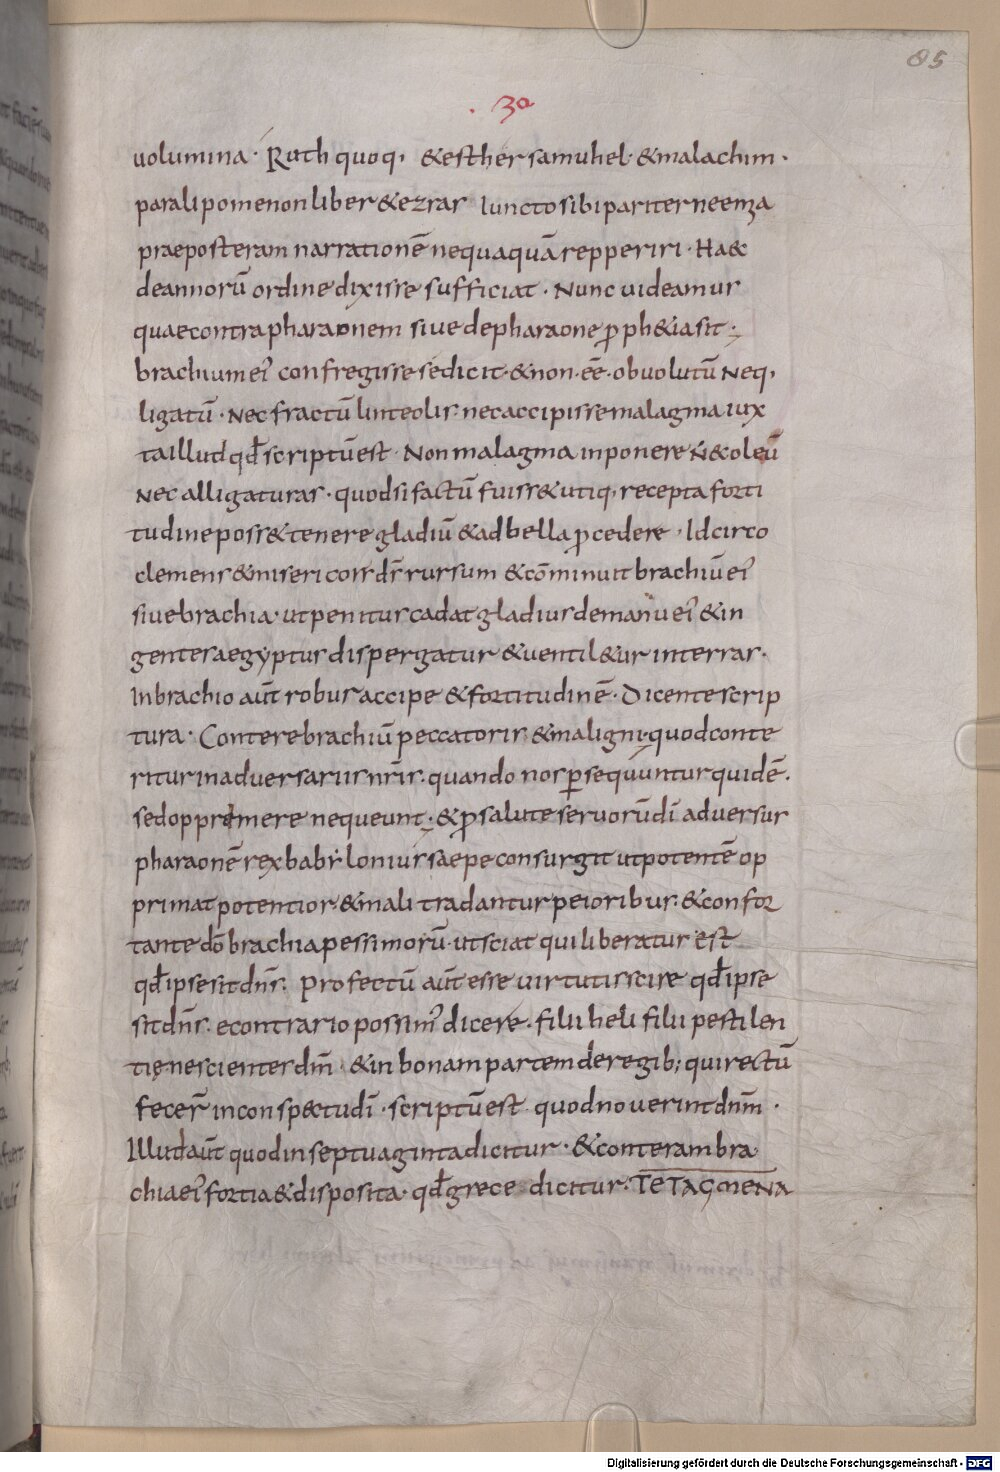 85
· 30
uolumina · Ruth quoq, &esther samuhel · &malachim ·
paralipomenon liber &ezras Iuncto sibi pariter neemia
praeposteram narrationē nequaquā repperiri · Haec
de annorū ordine dixisse sufficiat · Nunc uideamus
quae contra pharaonem siue de pharaone ꝓph&ia sit ;
brachium ei' confregisse se dicit · & non · ēē · obuolutū Neq,
ligatū · Nec fractū linteolis · nec accipisse malagma iux
ta illud qđ scriptū est · Non malagma inponere N& oleū
Nec alligaturas · quod si factū fuiss& utiq, recepta forti
tudine poss& tenere gladiū & ad bella ꝓcedere · Idcirco
clemens & misericors ds̄ rursum & cōminuit brachiū ei'
siue brachia · ut penitus cadat gladius de manu ei' & in
gentes aegyptus dispergatur & uentil&ur in terras ·
In brachio aūt robur accipe & fortitudinē · Dicente scrip
tura · Contere brachiū peccatoris & maligni · quod conte
ritur in aduersariis nr̄is · quando nos ꝑsequuntur quidē ·
sed opprimere nequeunt · & ꝓ salute seruorū dī aduersus
pharaonē rex babẏlonius saepe consurgit ut potentē op
primat potentior · & mali tradantur peioribus · & confor
tante dō brachia pessimorū · ut sciat qui liberatus est
qđ ipse sit dn̄s · Profectū aūt esse uirtutis scire qđ ipse
sit dn̄s · e contrario possim' dicere · filii heli filii pestilen
tię nescientes dn̄m · & in bonam partem de regib; qui rectū
fecer̄ in conspectu dī · scriptū est quod nouerint dn̄m ·
Illud aūt quod in septuaginta dicitur · & conteram bra
chia ei' fortia & disposita · qđ grece dicitur · TETAGMENA
Digitalisierung gefördert durch die Deutsche Forschungsgemeinschaft - DFG